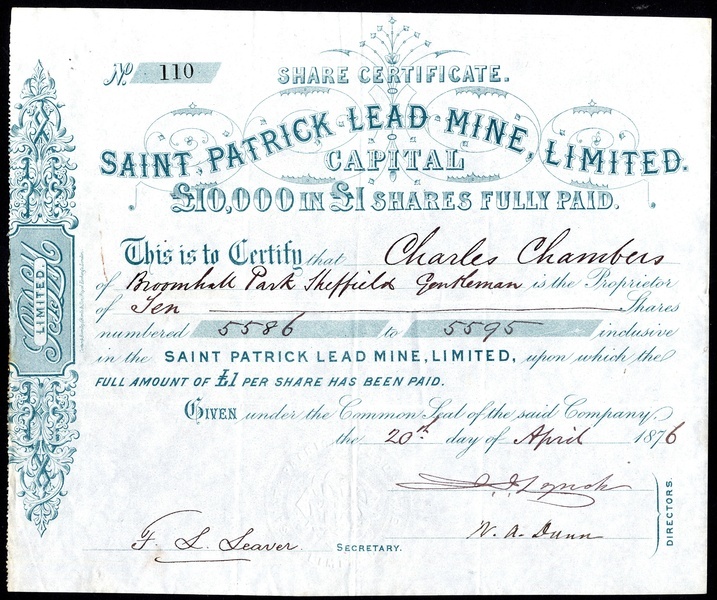 No. 110
SHARE CERTIFICATE.
SAINT PATRICK LEAD MINE, LIMITED.
CAPITAL
£10,000 IN £1 SHARES FULLY PAID.
This is to Certify that Charles Chambers
of Broomhall Park Sheffield Gentleman is the Proprietor
of Ten Shares
numbered 5586 to 5595 inclusive
in the SAINT PATRICK LEAD MINE, LIMITED, upon which the
FULL AMOUNT OF £1 PER SHARE HAS BEEN PAID.
GIVEN under the Common Seal of the said Company,
the 20th day of April 1876
Lynch
W. A. Dunn
DIRECTORS.
F. L. Seaver. SECRETARY.
LIMITED.